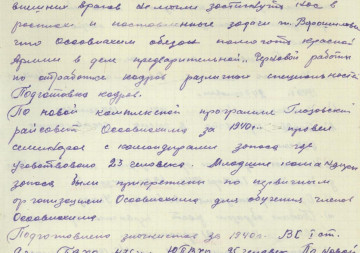 внешних врагов не могли застигнуть нас в
и поставленные задачи т. Ворошиловы
что Осоавиахим обязан помогать красной
Армии в деле предварительной работы
по отработке кадров различных специальносте
Подготовка кадров.
По новой комплексной программе Глазовский
райсовет Осоавиахима за 1940г. провел
с командирами запаса где
участвовало 23 человека. Младшие командиры
запаса были прикреплены по первичным
организациям Осоавиахима для обучения членов
Осоавиахима.
Подготовлено значкистов за 1940г. ВС I ст.
человек. По новой